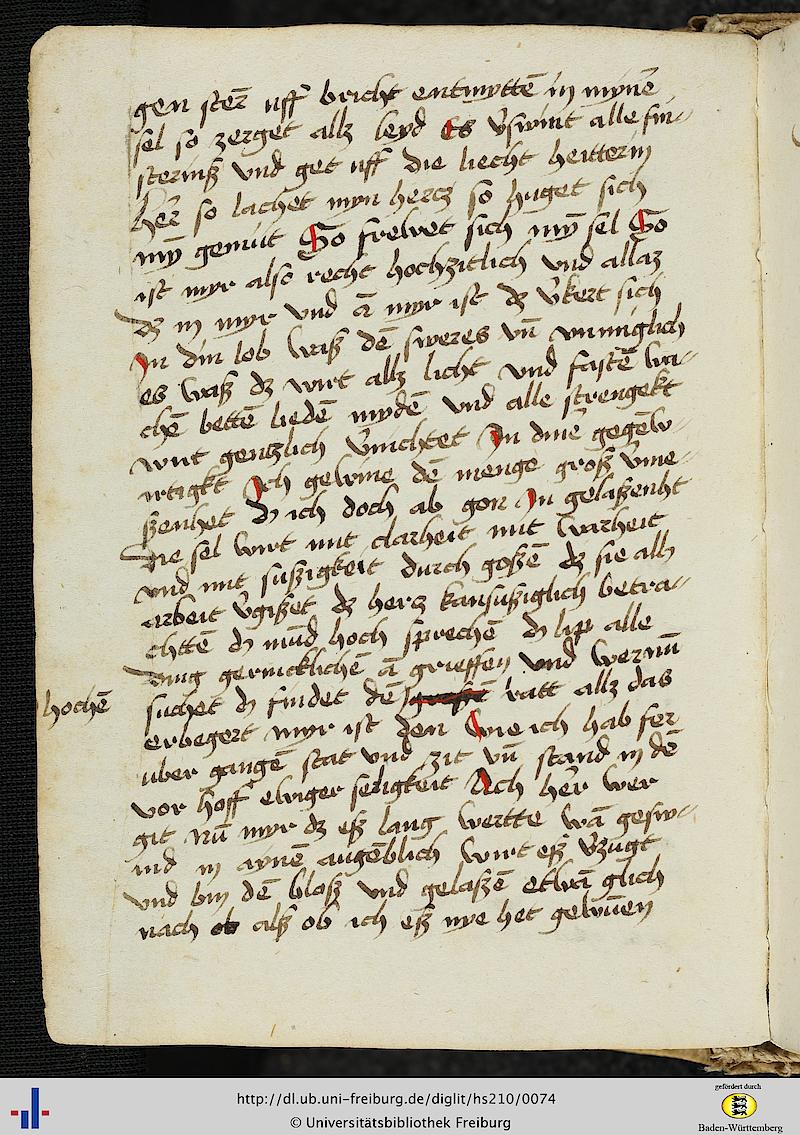 gen sterē uff bricht entmyttē in mynē
sel so zerget allz leyd Es v̄swint alle fin-
sterniß vnd get uff die liecht heitterin
her so lachet myn hercz so huget sich
myn̄ gemüt So frewet sich my̅ sel So
ist myr also recht hochzitlich vnd allaz
dz in myr vnd ā myr ist dz v̄kert sich
In din lob waß dē sweres vn̄ vnmiglich
es waß dz wirt allz licht vnd fastē wa-
chē bettē liedē mydē vnd alle strengekt
wirt gentzlich v̄nichtet In dinē gegēw-
irtigkt Ich gewine dē menge groß v̄me-
ßenhet d ich doch ab gon In gelaßenht
die sel wirt mit clarheit mit warheit
vnd mit sußigkeit durch goßē dz sie all
arbeit v̄gißet dz hercz kan sußiglich betra-
chttē d mūd hoch sprechē d lip alle
ding gericklichē ā grieffen vnd wer nū
hochē
suchet d findet dē ratt allz das
erbegert myr ist den wie ich hab fer
uber gangē stat vnd zit vn̄ stand in dē
vor hoff ewiger seligkeit Ach her wer
git nū myr dz eß lang wertte wā gesw-
ind in aynē augēblich wirt eß v̄zugt
vnd bin dē bloß vnd gelaßē etwā glich
nach alß ob ich eß nye het gewūen
http://dl.ub.uni-freiburg.de/diglit/hs210/0074
© Universitätsbibliothek Freiburg
gefördert durch
Baden-Württemberg